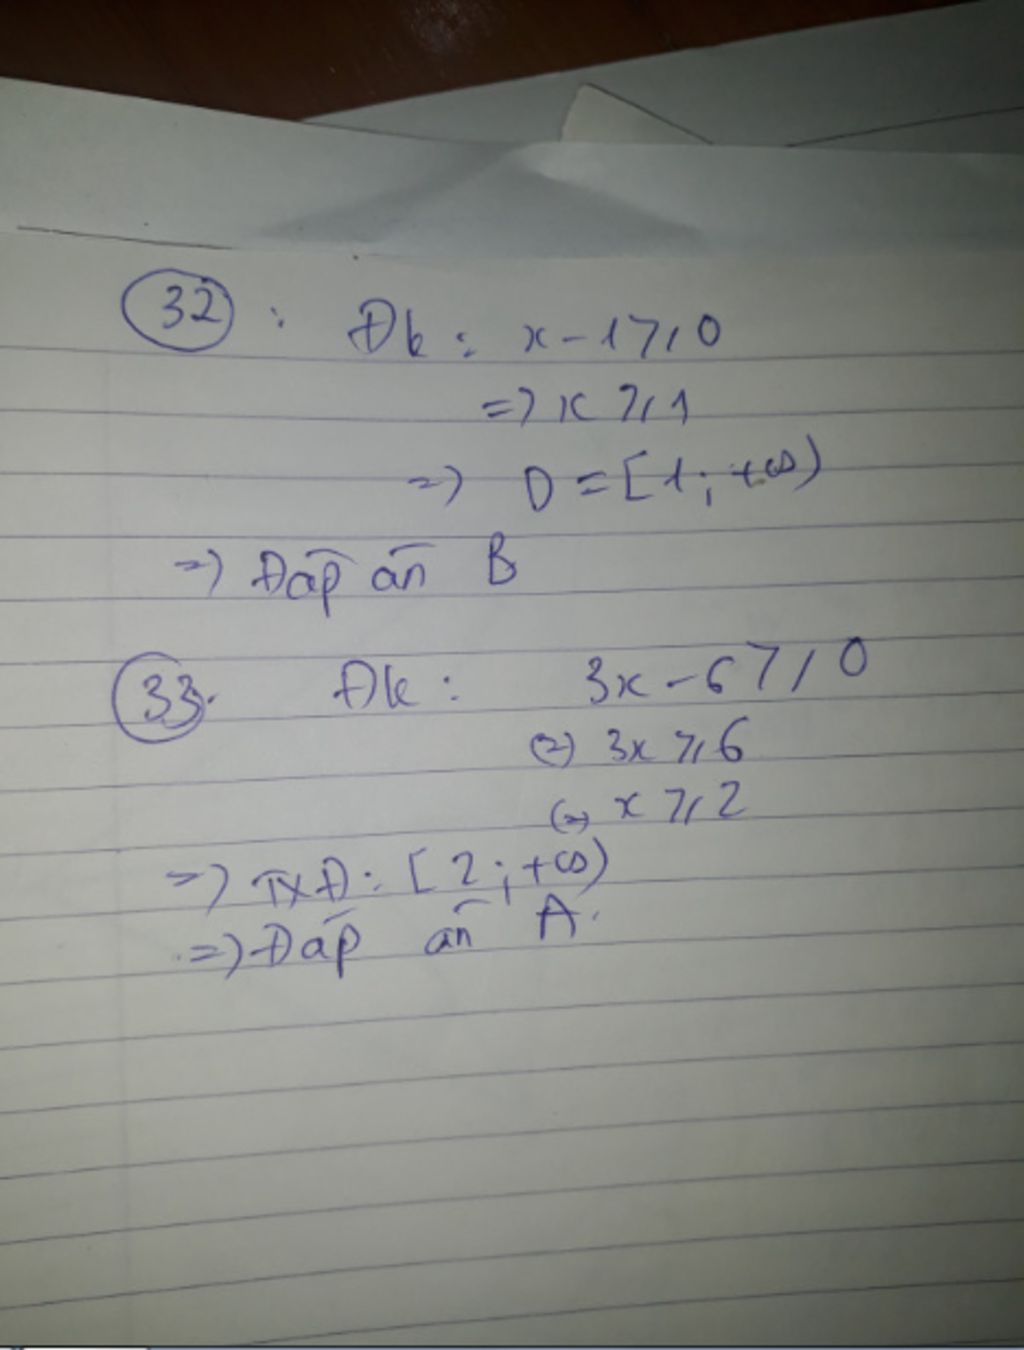 32 : Đk : x - 1 ⩾ 0
=> x ⩾ 1
=> D = [1 ; +∞)
=> Đáp án B
33. Đk : 3x - 6 ⩾ 0
(=) 3x ⩾ 6
(=) x ⩾ 2
=> TXĐ : [2 ; +∞)
=> Đáp án A.